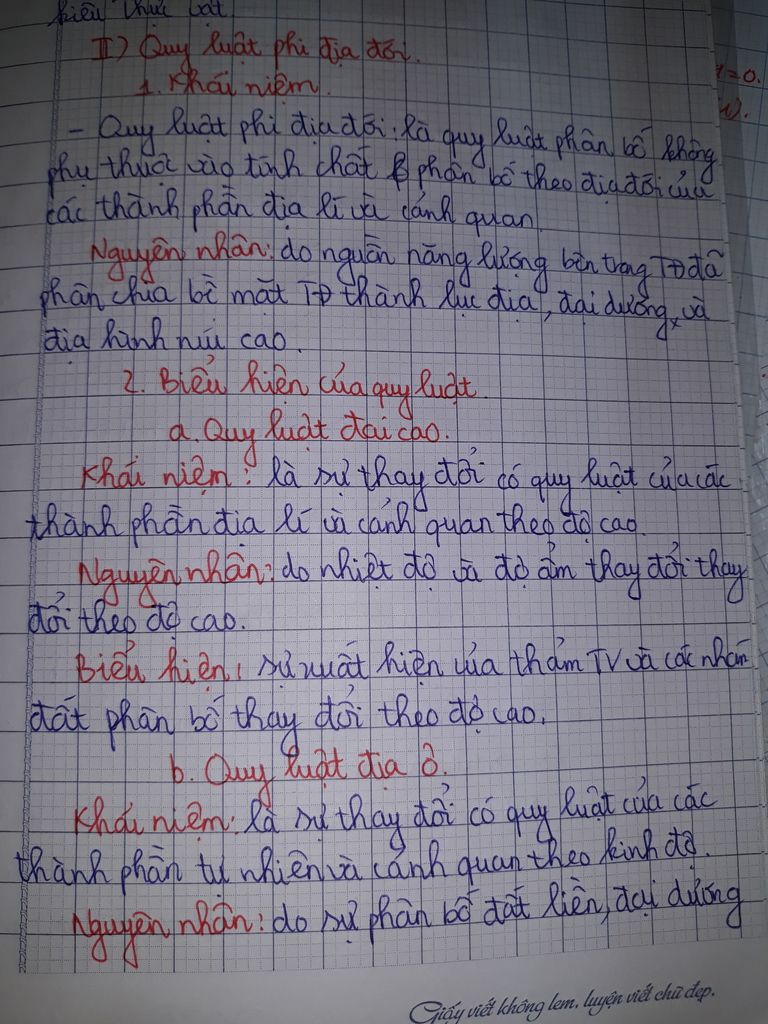 kiểu thức vật
II) Quy luật phi địa đới.
1. Khái niệm.
- Quy luật phi địa đới: là quy luật phân bố không
phụ thuộc vào tính chất phân bố theo địa đới của
các thành phần địa lí và cảnh quan.
Nguyên nhân: do nguồn năng lượng bên trong TĐ đã
phân chia bề mặt TĐ thành lục địa, đại dương, và
địa hình núi cao.
2. Biểu hiện của quy luật.
a. Quy luật đai cao.
Khái niệm: là sự thay đổi có quy luật của các
thành phần địa lí và cảnh quan theo độ cao.
Nguyên nhân: do nhiệt độ và độ ẩm thay đổi thay
đổi theo độ cao.
Biểu hiện: sự xuất hiện của thảm TV và các nhóm
đất phân bố thay đổi theo độ cao.
b. Quy luật địa ô.
Khái niệm: là sự thay đổi có quy luật của các
thành phần tự nhiên và cảnh quan theo kinh độ.
Nguyên nhân: do sự phân bố đất liền, đại dương
Giấy viết không lem, luyện viết chữ đẹp.